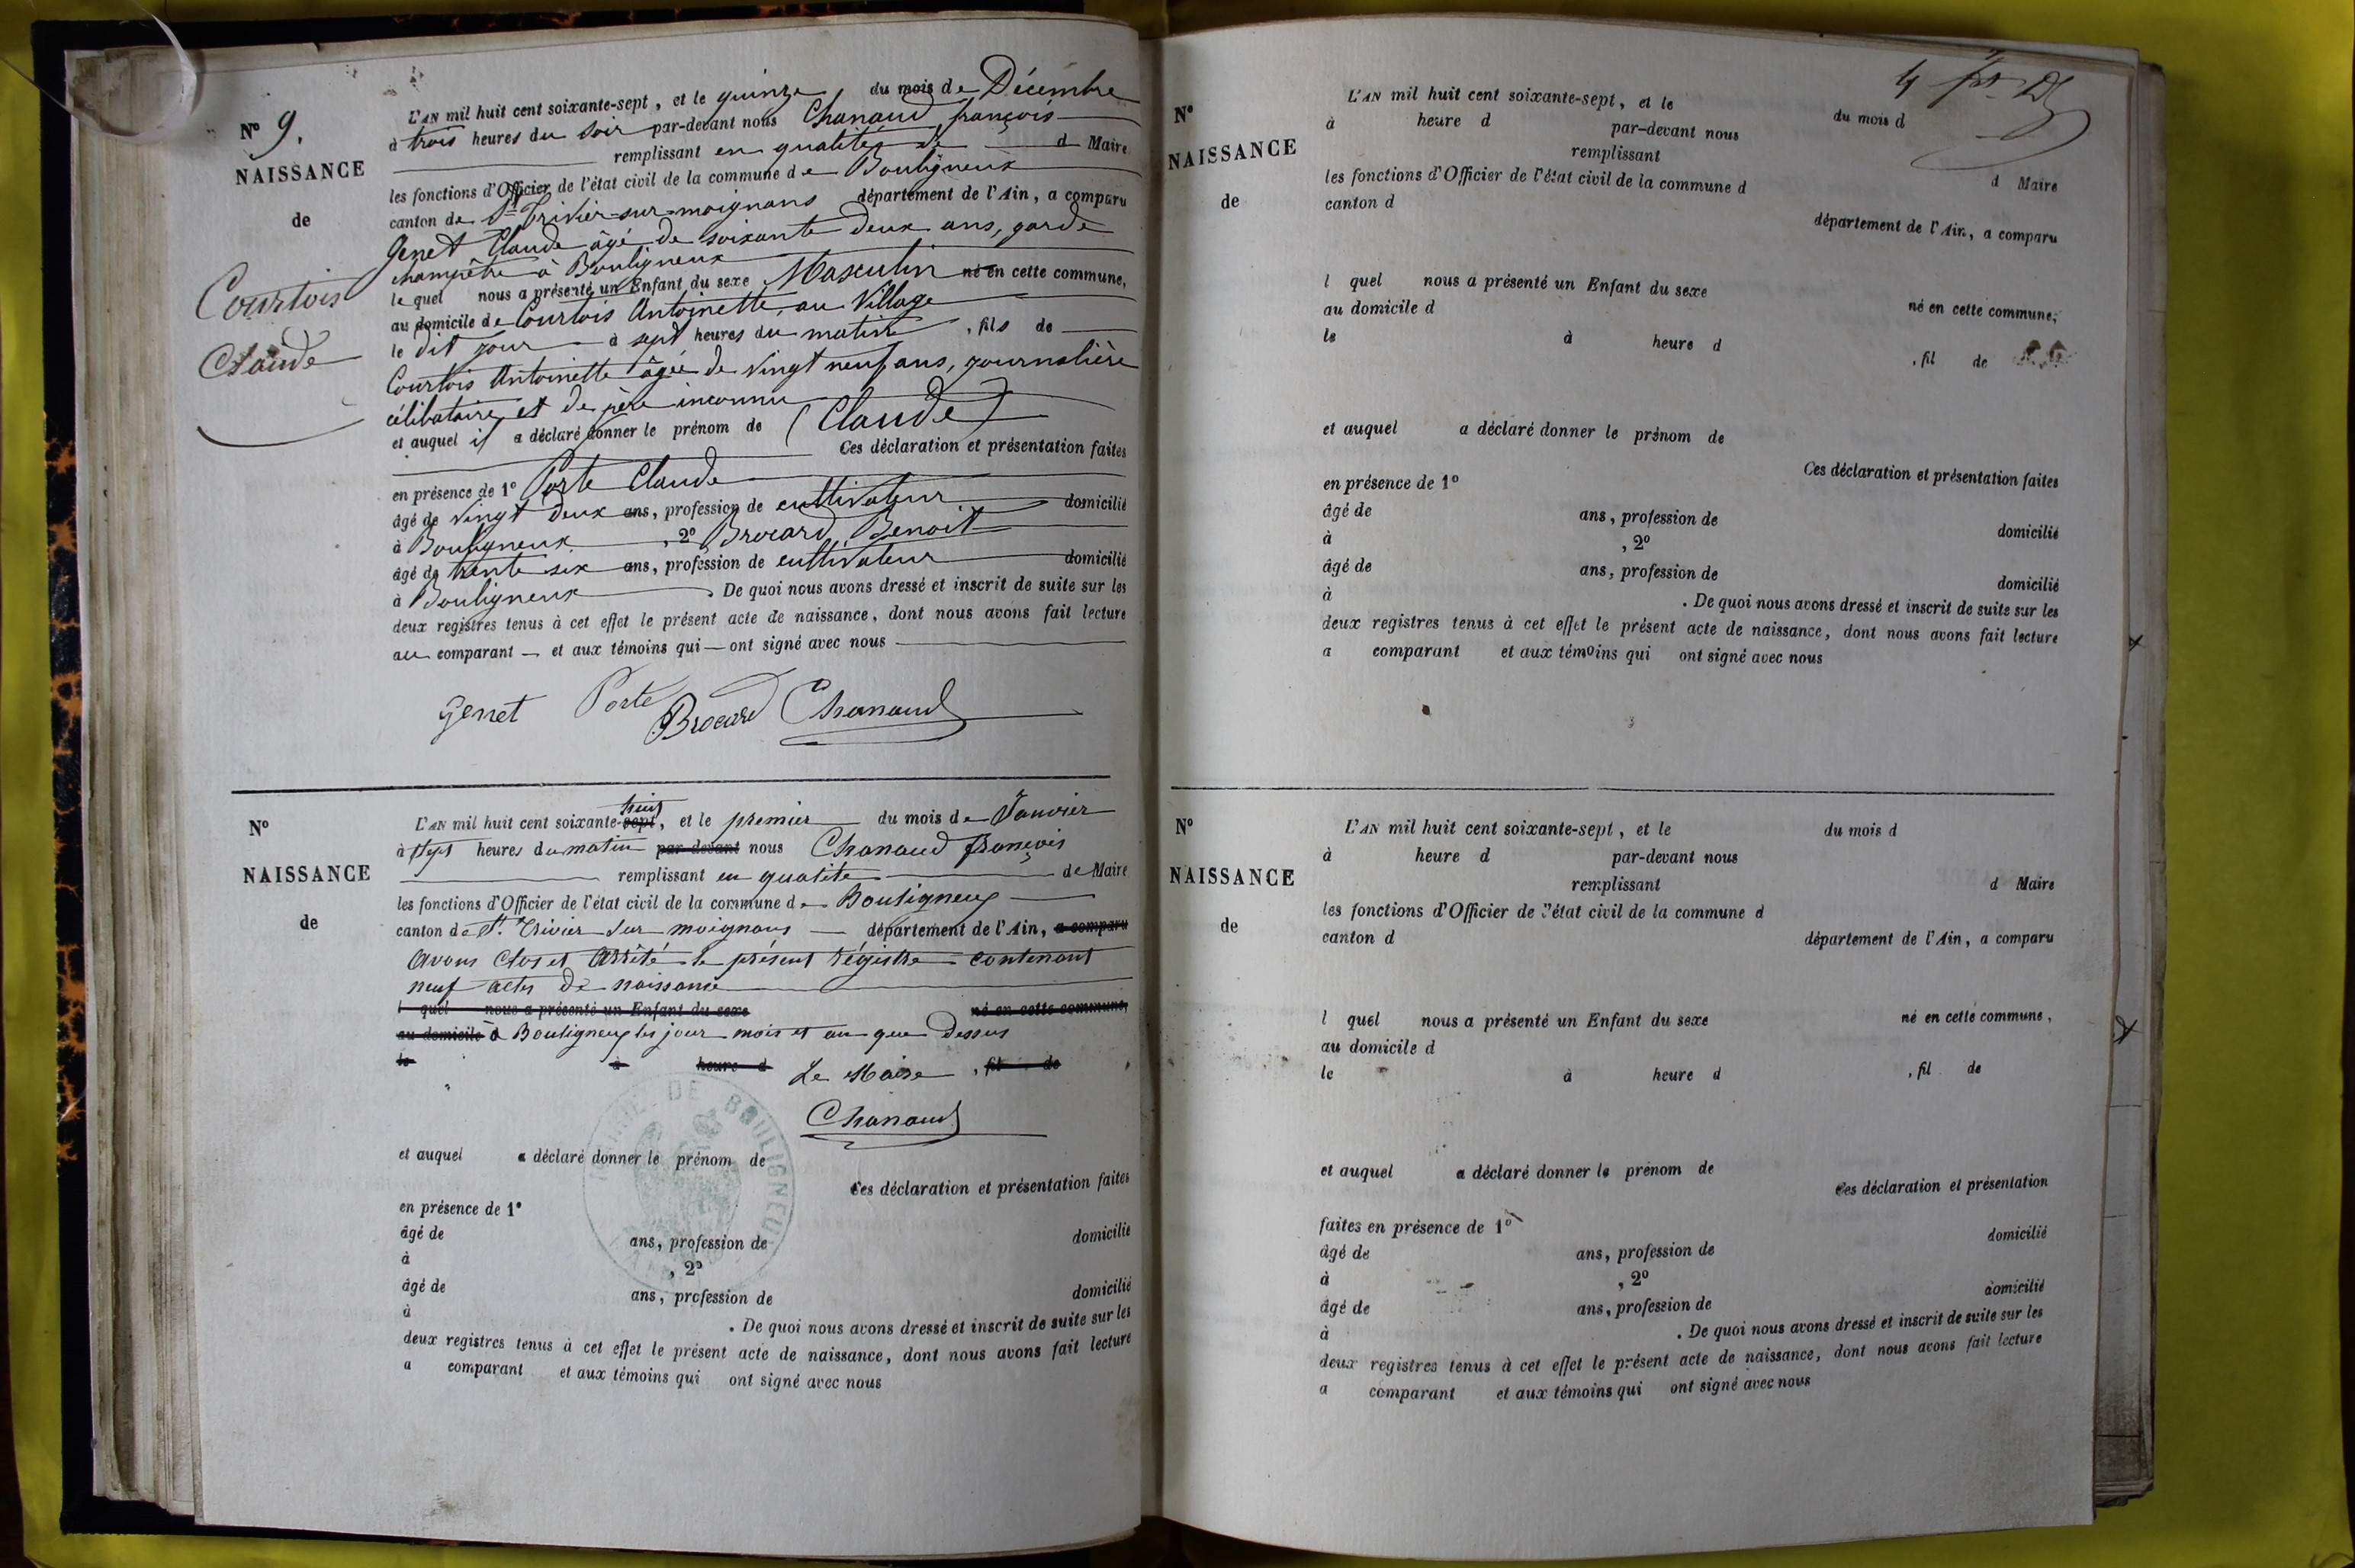 N° 9.
NAISSANCE
de
Courtois
Claude
L'AN mil huit cent soixante-sept, et le quinze du mois de Décembre
à trois heures du soir par-devant nous Chanaud françois
remplissant en qualités de d Maire
les fonctions d'Officier de l'état civil de la commune de Bouligneux
canton de St Trivier-sur-moignans département de l'Ain, a comparu
Genet Claude âgé de soixante deux ans, garde
champêtre à Bouligneux
le quel nous a présenté un Enfant du sexe Masculin né en cette commune,
au domicile de Courtois Antoinette, au Village
le dit jour à sept heures du matin, fils de
Courtois Antoinette âgée de vingt neuf ans, journalière
célibataire, et de père inconnu
et auquel il a déclaré donner le prénom de (Claude)
Ces déclaration et présentation faites
en présence de 1° Porte Claude
âgé de vingt deux ans, profession de cultivateur domicilié
à Bouligneux, 2° Brocard Benoit
âgé de trente six ans, profession de cultivateur domicilié
à Bouligneux. De quoi nous avons dressé et inscrit de suite sur les
deux registres tenus à cet effet le présent acte de naissance, dont nous avons fait lecture
au comparant et aux témoins qui ont signé avec nous
Genet Porte Brocard Chanaud
N°
NAISSANCE
de
huit
L'AN mil huit cent soixante-sept, et le premier du mois de Janvier
à sept heures du matin par-devant nous Chanaud françois
remplissant en qualité de Maire
les fonctions d'Officier de l'état civil de la commune de Bouligneux
canton de St. Trivier sur moignans département de l'Ain, a comparu
Avons Clos et Arrêté le présent régistre contenant
neuf actes de naissance
l quel nous a présenté un Enfant du sexe né en cette commune,
au domicile à Bouligneux les jour mois et an que dessus
le à heure d Le Maire, fil de
Chanaud
MAIRIE DE BOULIGNEUX
et auquel a déclaré donner le prénom de
Ces déclaration et présentation faites
en présence de 1°
âgé de ans, profession de domicilié
à , 2°
âgé de ans, profession de domicilié
à . De quoi nous avons dressé et inscrit de suite sur les
deux registres tenus à cet effet le présent acte de naissance, dont nous avons fait lecture
a comparant et aux témoins qui ont signé avec nous
4
N°
NAISSANCE
de
L'AN mil huit cent soixante-sept, et le du mois d
à heure d par-devant nous
remplissant d Maire
les fonctions d'Officier de l'état civil de la commune d
canton d département de l'Ain, a comparu
l quel nous a présenté un Enfant du sexe né en cette commune,
au domicile d
le à heure d , fil de
et auquel a déclaré donner le prénom de
Ces déclaration et présentation faites
en présence de 1°
âgé de ans, profession de domicilié
à , 2°
âgé de ans, profession de domicilié
à . De quoi nous avons dressé et inscrit de suite sur les
deux registres tenus à cet effet le présent acte de naissance, dont nous avons fait lecture
a comparant et aux témoins qui ont signé avec nous
N°
NAISSANCE
de
L'AN mil huit cent soixante-sept, et le du mois d
à heure d par-devant nous
remplissant d Maire
les fonctions d'Officier de l'état civil de la commune d
canton d département de l'Ain, a comparu
l quel nous a présenté un Enfant du sexe né en cette commune,
au domicile d
le à heure d , fil de
et auquel a déclaré donner le prénom de
Ces déclaration et présentation
faites en présence de 1°
âgé de ans, profession de domicilié
à , 2°
âgé de ans, profession de domicilié
à . De quoi nous avons dressé et inscrit de suite sur les
deux registres tenus à cet effet le présent acte de naissance, dont nous avons fait lecture
a comparant et aux témoins qui ont signé avec nous